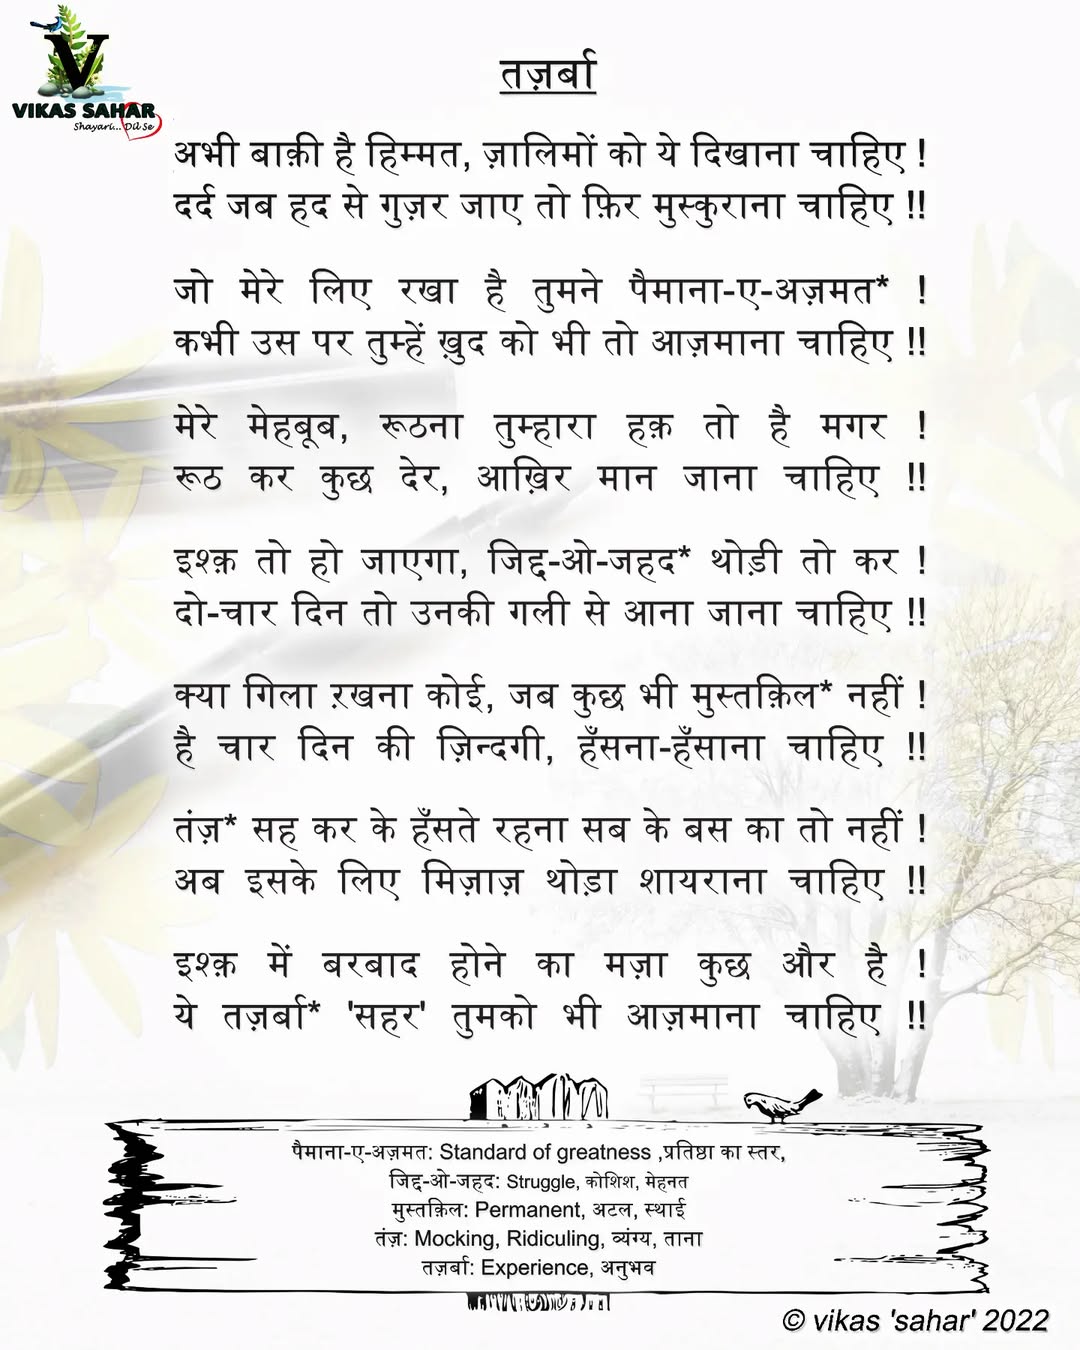 V
VIKAS SAHAR
Shayari... Dil Se
तज़र्बा
अभी बाक़ी है हिम्मत, ज़ालिमों को ये दिखाना चाहिए !
दर्द जब हद से गुज़र जाए तो फ़िर मुस्कुराना चाहिए !!
जो मेरे लिए रखा है तुमने पैमाना-ए-अज़मत* !
कभी उस पर तुम्हें ख़ुद को भी तो आज़माना चाहिए !!
मेरे मेहबूब, रूठना तुम्हारा हक़ तो है मगर !
रूठ कर कुछ देर, आख़िर मान जाना चाहिए !!
इश्क़ तो हो जाएगा, जिद्द-ओ-जहद* थोड़ी तो कर !
दो-चार दिन तो उनकी गली से आना जाना चाहिए !!
क्या गिला ऱखना कोई, जब कुछ भी मुस्तक़िल* नहीं !
है चार दिन की ज़िन्दगी, हँसना-हँसाना चाहिए !!
तंज़* सह कर के हँसते रहना सब के बस का तो नहीं !
अब इसके लिए मिज़ाज़ थोड़ा शायराना चाहिए !!
इश्क़ में बरबाद होने का मज़ा कुछ और है !
ये तज़र्बा* 'सहर' तुमको भी आज़माना चाहिए !!
पैमाना-ए-अज़मत: Standard of greatness ,प्रतिष्ठा का स्तर,
जिद्द-ओ-जहद: Struggle, कोशिश, मेहनत
मुस्तक़िल: Permanent, अटल, स्थाई
तंज़: Mocking, Ridiculing, व्यंग्य, ताना
तज़र्बा: Experience, अनुभव
© vikas 'sahar' 2022